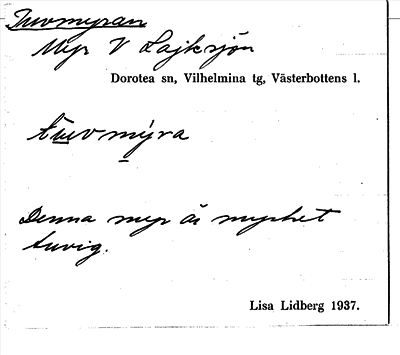 Tuvmyran
Myr V Lajksjön
Dorotea sn, Vilhelmina tg, Västerbottens l.
tuvmýra
Denna myr är mycket
tuvig.
Lisa Lidberg 1937.